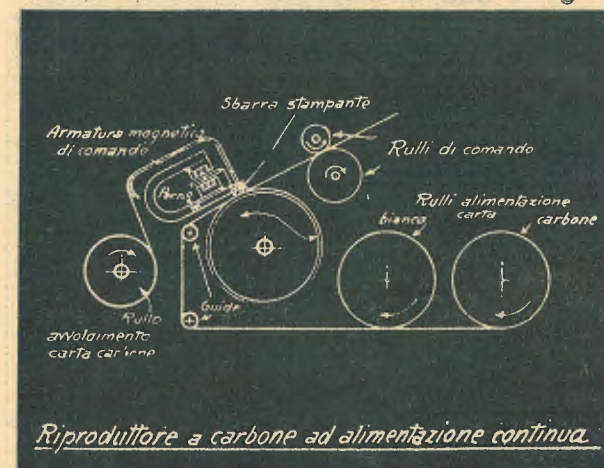 Sbarra stampante
Armatura magnetica
di comando
Perno
Rulli di comando
Rulli alimentazione
carta
bianca
carbone
Guide
Rullo
avvolgimento
carta carbone
Riproduttore a carbone ad alimentazione continua